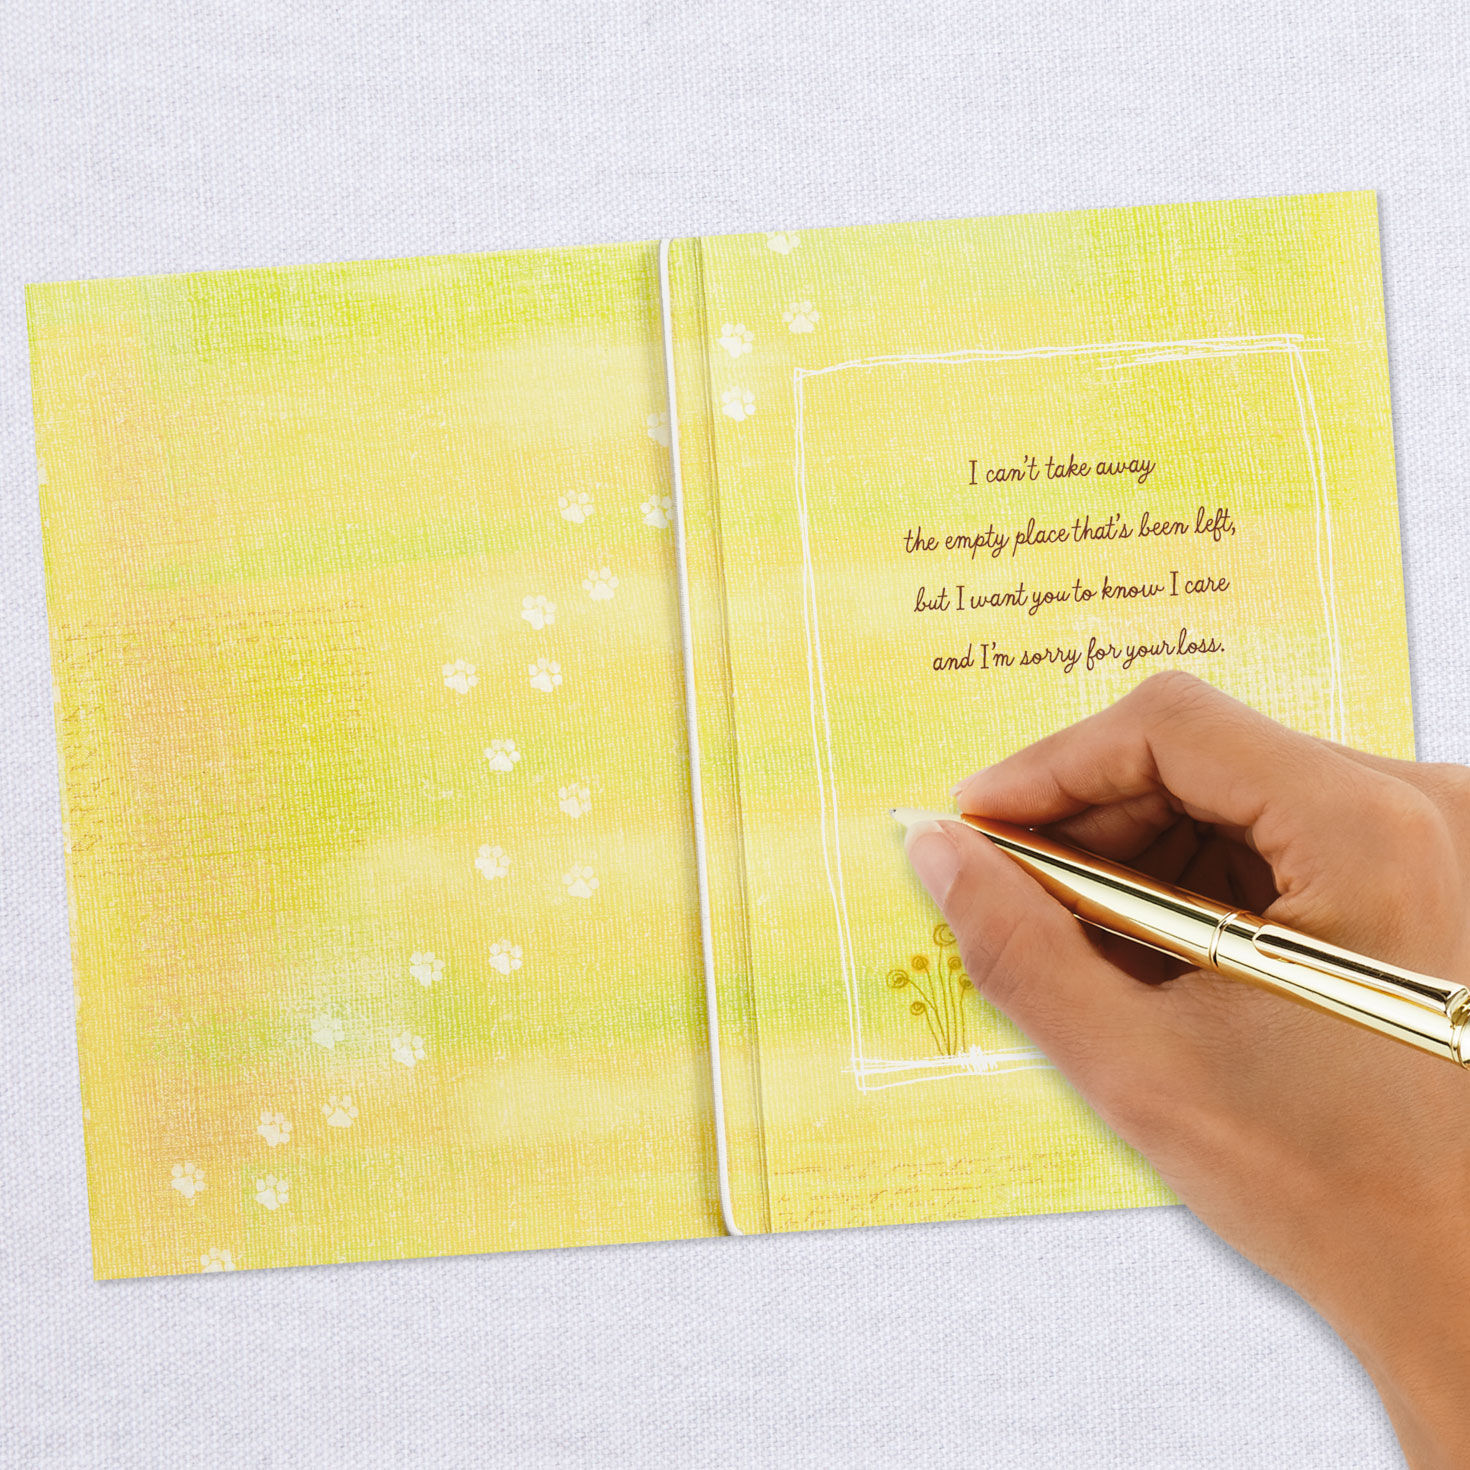 I can't take away
the empty place that's been left,
but I want you to know I care
and I'm sorry for your loss.